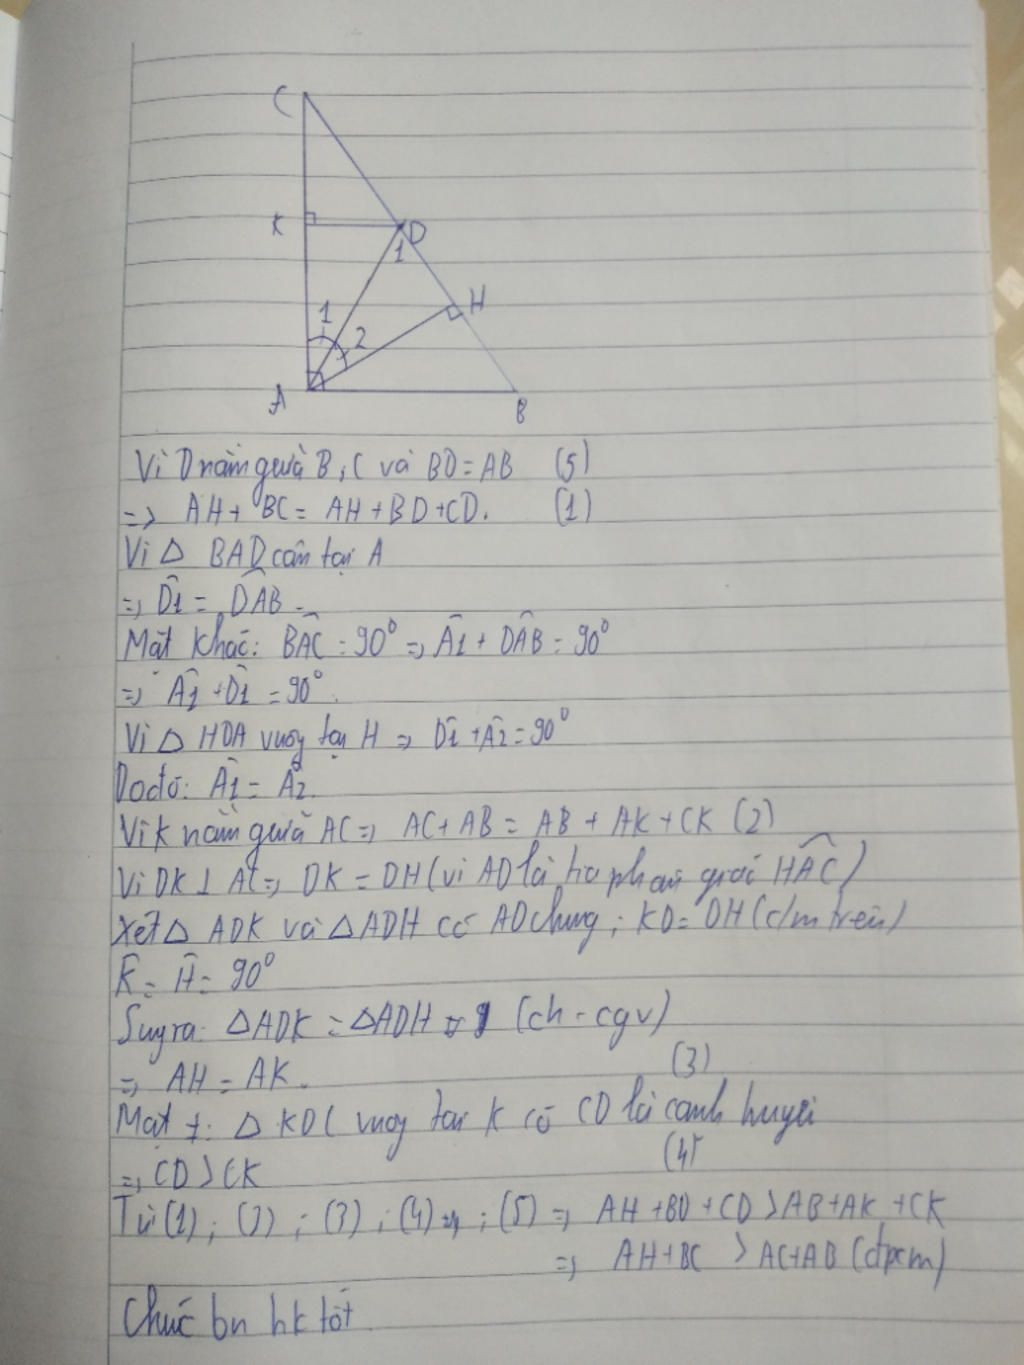 C
K
D
1
H
1
2
A
B
Vì D nằm giữa B, C và BD = AB (5)
=> AH + BC = AH + BD + CD. (1)
Vì △ BAD cân tại A
=> D̂1 = DÂB.
Mặt khác: BÂC = 90° => Â1 + DÂB = 90°
=> Â1 + D̂1 = 90°.
Vì △ HDA vuông tại H => D̂1 + Â2 = 90°
Do đó: Â1 = Â2.
Vì K nằm giữa AC => AC + AB = AB + AK + CK (2)
Vì DK ⊥ AC => DK = DH (vì AD là tia phân giác HÂC)
Xét △ ADK và △ ADH có AD chung; KD = DH (c/m trên)
K̂ = Ĥ = 90°
Suy ra: △ADK = △ADH (ch - cgv)
=> AH = AK. (3)
Mặt ≠: △ KDC vuông tại K có CD là cạnh huyền
=> CD > CK (4)
Từ (1); (2); (3); (4); (5) => AH + BD + CD > AB + AK + CK
=> AH + BC > AC + AB (đpcm)
Chúc bn hk tốt